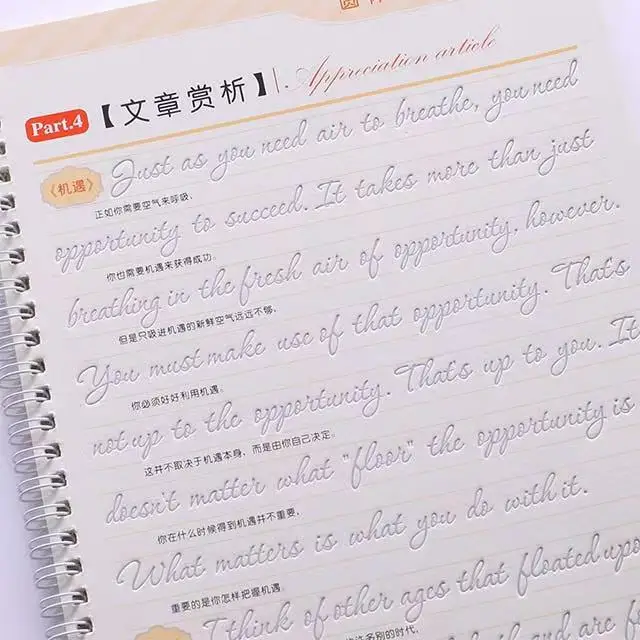 Part.4 【文章赏析】 Appreciation article
《机遇》 Just as you need air to breathe, you need
正如你需要空气来呼吸,
opportunity to succeed. It takes more than just
你也需要机遇来获得成功.
breathing in the fresh air of opportunity, however.
但是只吸进机遇的新鲜空气远远不够,
You must make use of that opportunity. That's
你必须好好利用机遇;
not up to the opportunity. That's up to you. It
这并不取决于机遇本身, 而是由你自己决定。
doesn't matter what "floor" the opportunity is
你在什么时候得到机遇并不重要,
What matters is what you do with it.
重要的是你怎样把握机遇。
I think of other ages that floated upo
许多别的时代,
and are f